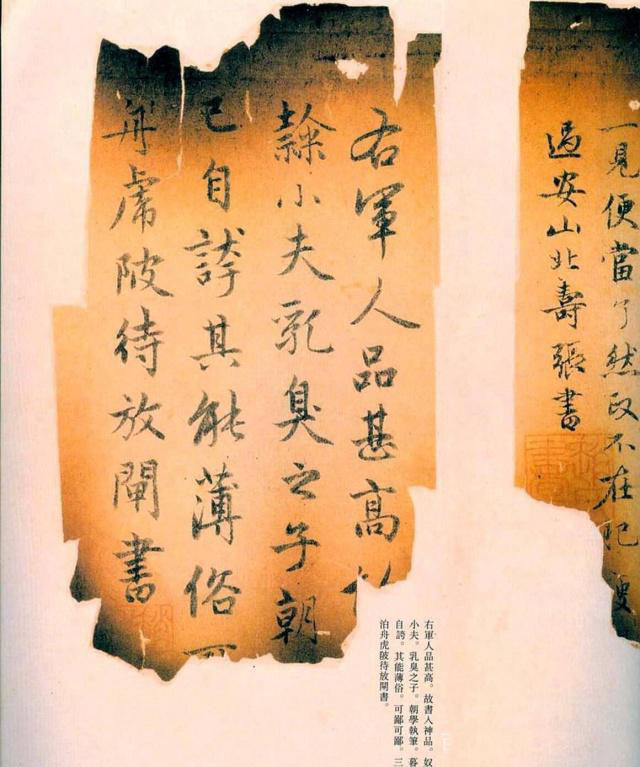 一見便當了然政不在肥
過安山北壽張書
右軍人品甚高
隸小夫乳臭之子朝
已自誇其能薄俗可
舟虎陂待放閘書
右軍人品甚高。故書入神品。奴
小夫。乳臭之子。朝學執筆。暮
自誇。其能薄俗。可鄙可鄙。三
泊舟虎陂待放閘書。